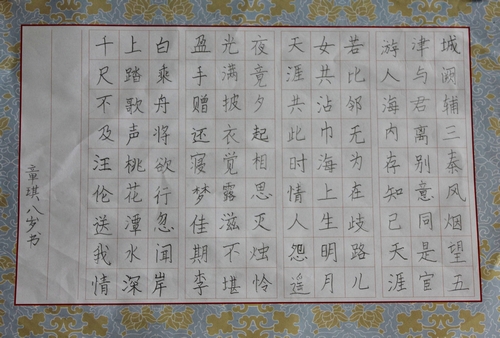 城阙辅三秦风烟望五
津与君离别意同是宦
游人海内存知己天涯
若比邻无为在歧路儿
女共沾巾海上生明月
天涯共此时情人怨遥
夜竟夕起相思灭烛怜
光满披衣觉露滋不堪
盈手赠还寝梦佳期李
白乘舟将欲行忽闻岸
上踏歌声桃花潭水深
千尺不及汪伦送我情
章琪八岁书